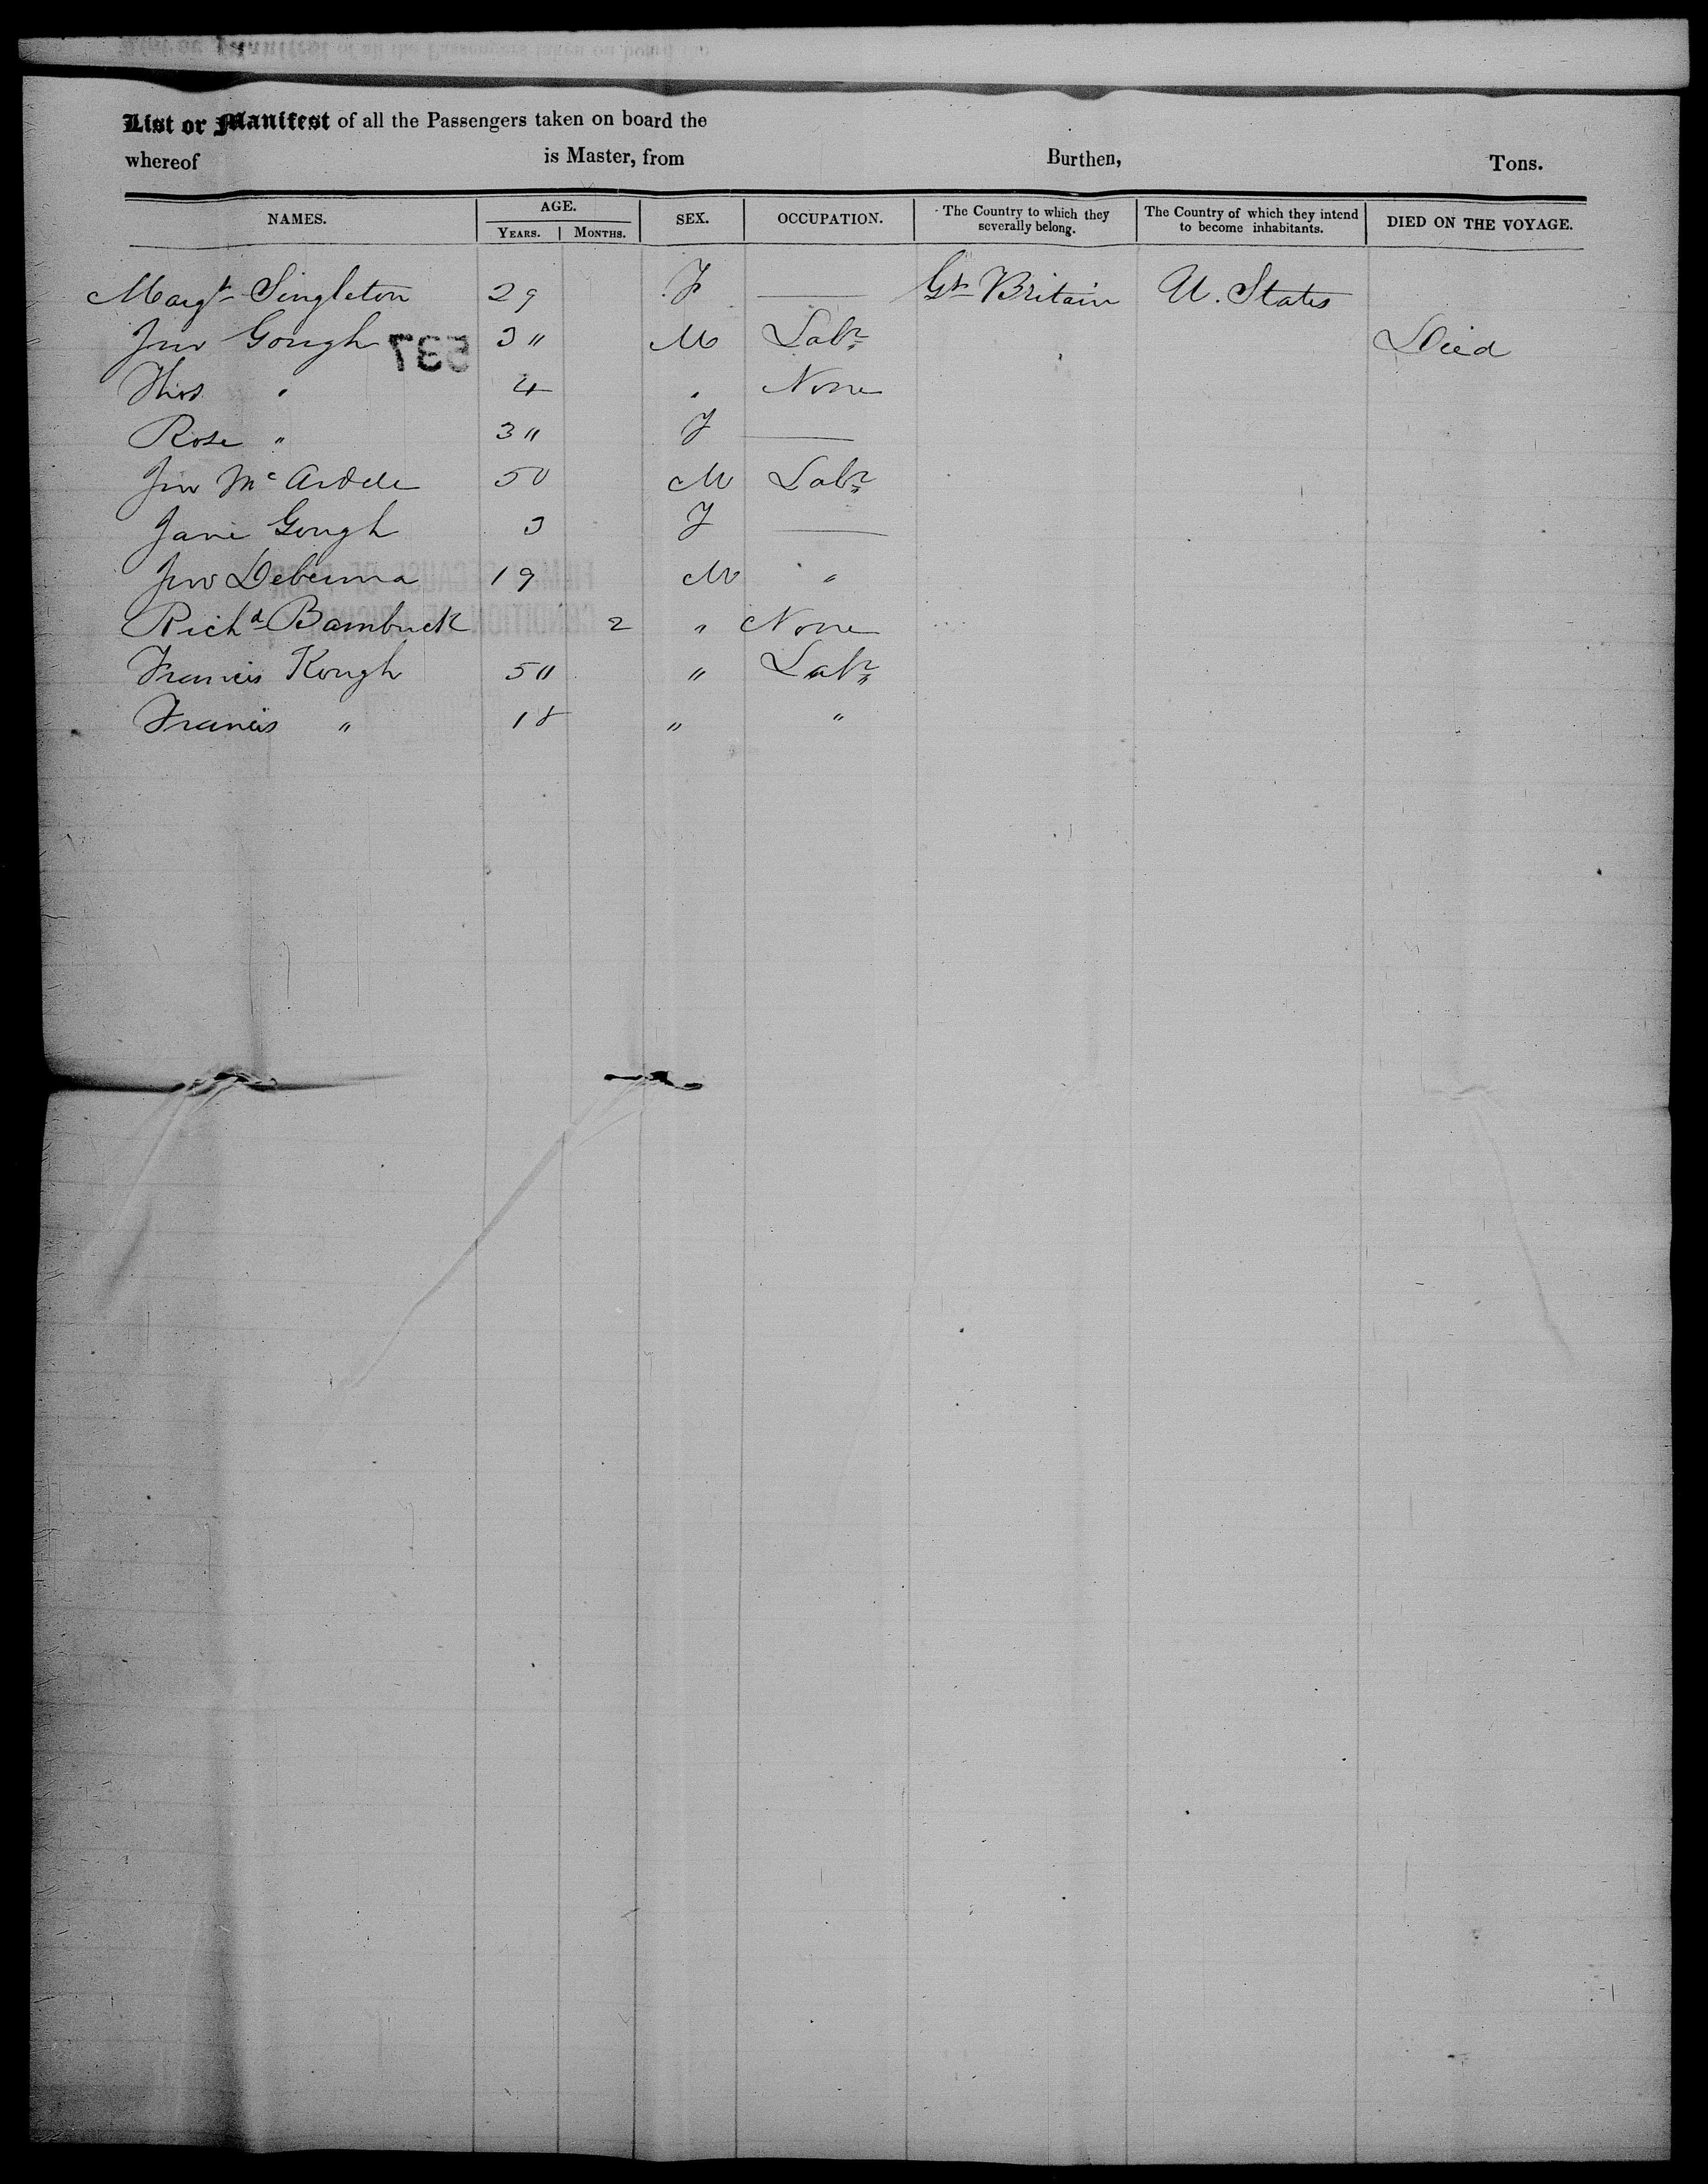 List or Manifest of all the Passengers taken on board the
whereof is Master, from Burthen, Tons.
NAMES. AGE. YEARS. MONTHS. SEX. OCCUPATION. The Country to which they severally belong. The Country of which they intend to become inhabitants. DIED ON THE VOYAGE.
Margt Singleton 29 F — Gt Britain U. States
Jno Gough 3" M Labr Died
537
Thos " 4 " None
Rose " 3" F —
Jno McArdle 50 M Labr
Jane Gough 3 F —
Jno 19 M "
Richd Bambrick 2 " None
Francis Kough 5" " Labr
Francis " 18 " "